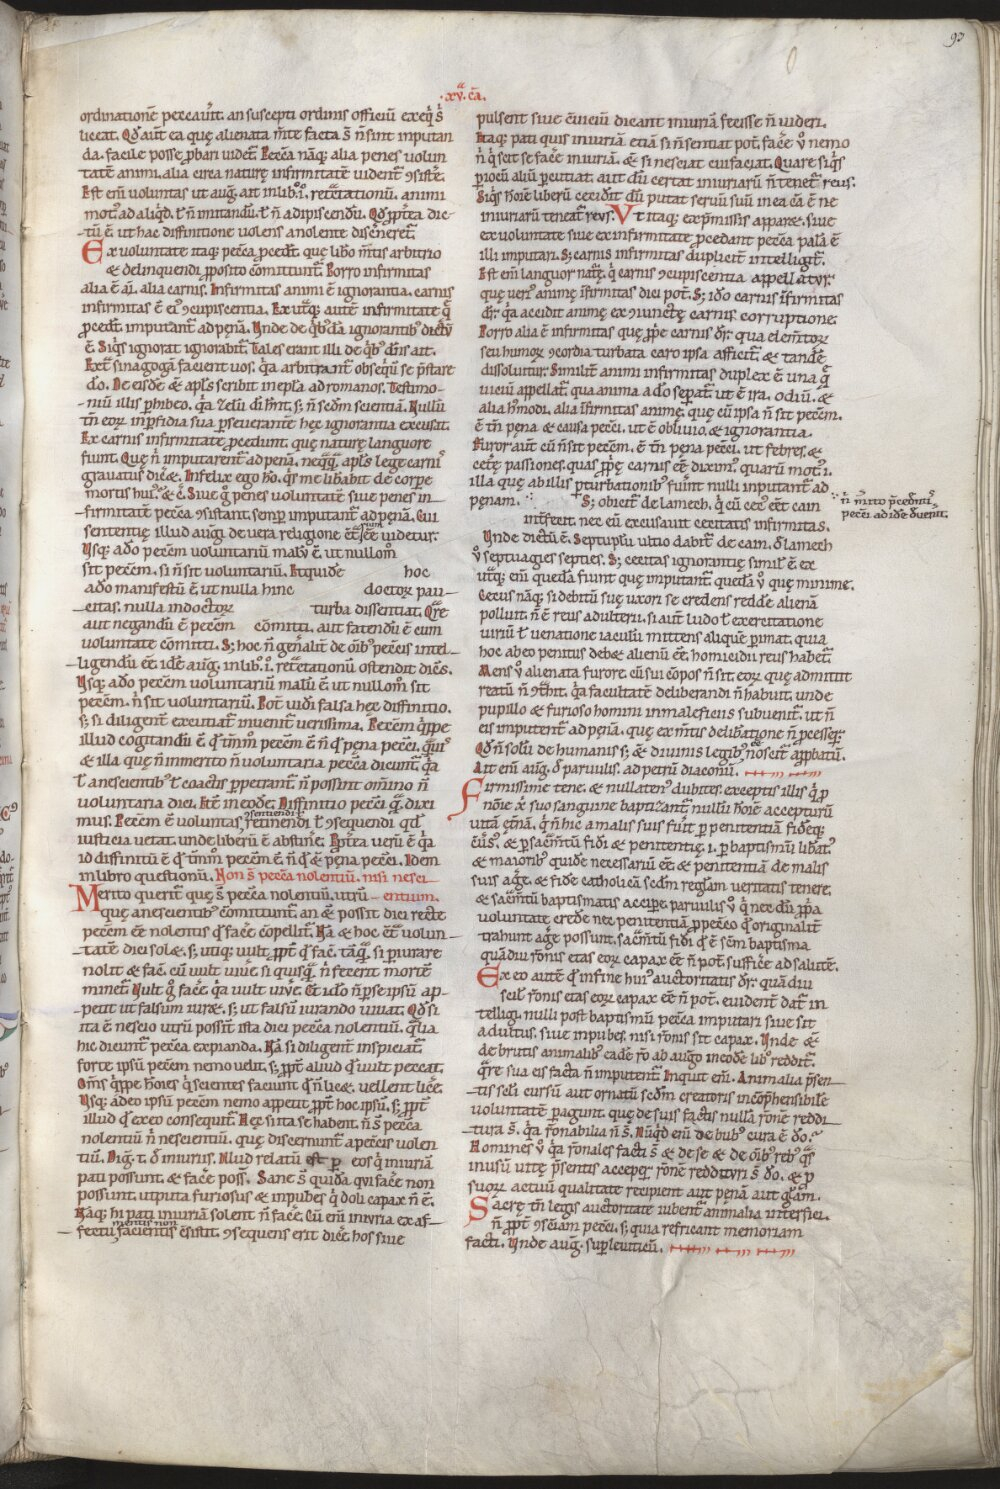 93
.xv. cā.
ordinationē peccauīt. an suscepti ordinis officiū exeq̇ s̄
liceat. Qd̄ aut̄ ea quę alienata m̄te facta s̄ n̄ sint imputan
da. facile posse ꝓbari uidet̄. Peccā naq; alia penes uolun
tatē animi. alia circa naturę infirmitatē uident̄ ꝯsistē.
Est em̄ uoluntas ut auḡ. ait in lib̊. i. retractationū. animi
mot᷒ ad aliqd̄. ł n̄ mittendū. ł n̄ adipiscendū. Qd̄ ꝓpt̄ea dic
tū ē ut hac diffinitione uolens a nolente discerneret̄.
Ex uoluntate itaq; peccā ꝓcedt̄. quę libo m̄tis arbitrio
& delinquendi ꝓposito cōmittunt̄. Porro infirmitas
alia ē aī. alia carnis. Infirmitas animi ē ignorantia. carnis
infirmitas ē ei᷒ ꝯcupiscentia. Ex utq; autē infirmitate q̄
ꝓcedt̄. imputant̄ ad pęnā. Unde de q̇b᷒dā ignorantib᷒ dictū
ē. Siq̇s ignorat ignorabit̄. Tales erant illi de q̇b᷒ dn̄s ait.
Ext̄ sinagoga facient uos. q̇a arbitrant̄ obseq̇ū se p̄stare
dō. De eisdē & apl̄s scribit in epl̄a ad romanos. Testimo
niū illis ꝑhibeo. q̇a zelū dī hn̄t. s; n̄ scdm̄ scientiā. Nullū
tn̄ eoꝝ in ꝑfidia sua ꝑseuerantē hęc ignorantia excusat.
Ex carnis infirmitate ꝓcedunt. quę naturę languore
fiunt. Quę n̄ imputarent̄ ad pęnā. neq̇q̄ apl̄s lege carni᷒
grauatus dicēt. Infelix ego hō. q̇s me libābit de corpe
mortis hui᷒. & c̄. Siue g̊ penes uoluntatē siue penes in
firmitatē peccā ꝯsistant. semp imputant̄ ad pęnā. Cui
sententię illud augī de uera religione cont̄rē ēē uidetur.
Usq; adō peccm̄ uoluntariū malū ē. ut nullom̄
sit peccm̄. si n̄ sit uoluntariū. Et quidē hoc
adō manifestū ē ut nulla hinc doctoꝝ pau
citas. nulla indoctoꝝ turba dissentiat. Qr̄e
aut negandū ē peccm̄ cōmitti. aut fatendū ē cum
uoluntate cōmitti. S; hoc n̄ gen̄alit̄ de oīb᷒ peccīs intel
ligendū ēē. idē auḡ. in lib. i. retractationū ostendit dicēs.
Usq; adō peccm̄ uoluntariū malū ē. ut nullom̄ sit
peccm̄. n̄ sit uoluntariū. Pot̄ uidī falsa hęc diffinitio.
s; si diligent̄ excutiat̄ inuenit̄ uerissima. Peccm̄ q̇ppe
illud cogitandū ē. qd̄ tm̄m̊ peccm̄ ē. n̄ qd̄ pęna peccī. q̄uis
& illa quę n̄ inmerito n̄ uoluntaria peccā dicunt̄. q̇a
ł a nescientib᷒ ł coactis ꝑpetrant̄. n̄ possint om̄ino n̄
uoluntaria dici. Itē in eodē. Diffinitio peccī q̄ diximus.
Peccm̄ ē uoluntas retinendi ł ꝯsequendi qd̄
iusticia uetat. unde liberū ē abstinē. Ꝓpt̄ea uerū ē q̇a
id diffinitū ē qd̄ tm̄m̊ peccm̄ ē. n̄ qd̄ & pęna peccī. Idem
in libro questionū. Non s̄ peccā nolentiū. nisi nesci
Merito querit̄ quę s̄ peccā nolentiū. utrū entium.
quę a nescientib᷒ cōmittunt̄. an & possit dici recte
peccm̄ ēē nolentis qd̄ facē cōpellit̄. Nā & hoc cont̄ uolun
tatē dici solēt. s; utiq; uult. ꝓpt̄ qd̄ fac̄. tāq̄ si piurare
nolit & fac̄. cū uult uiuē. si quisq̄ n̄ fecerit mortē
minet̄. Vult g̊ facē. q̇a uult uiuē. Et idō n̄ ꝑ se ipsū ap
petit ut falsum iuret. s; ut falsū iurando uiuat. Qd̄ si
ita ē. nescio utrū possint ista dici peccā nolentiū. q̄lia
hic dicunt̄ peccā expianda. Nā si diligent̄ inspiciat̄.
forte ipsū peccm̄ nemo uelit. s; ꝓpt̄ aliud qd̄ uult peccat.
Om̄s q̇ppe hōies q̇ scientes faciunt qd̄ n̄ licet. uellent licē.
Usq; adeo ipsū peccm̄ nemo appetit ꝓpt̄ hoc ipsū. s; ꝓpt̄
illud qd̄ ex eo consequit̄. Hęc si ita se habent. n̄ s̄ peccā
nolentiū n̄ nescientiū. quę discernunt̄ a peccīs uolen
tiū. Dig̊. t. d̄ iniuriis. Illud relatū est ꝑ eos q̇ iniuriā
pati possunt. & facē poss̄. Sane s̄ quidā qui facē non
possunt. utputa furiosus & impubes q̇ doli capax n̄ ē.
Naq; hi pati iniuriā solent n̄ facē. Cū em̄ iniuria ex af
fectu facientis cōsistit. ꝯsequens erit dicē. hos siue
mentis non
pulsent siue cōuiciū dicant iniuriā fecisse n̄ uideri.
Itaq; pati quis iniuriā etiā si n̄ sentiat pot̄. facē ỽ nemo
n̄ q̇ scit se facē iniuriā. & si nesciat cui faciat. Quare si q̇s
ꝑ iocū aliū ꝑcutiat. aut dū certat iniuriarū n̄ tenet̄ reus.
Siq̇s hoīe liberū ceciderit dū putat seruū suū in ea cā ē ne
iniuriarū teneat̄ reus. Vt itaq; ex p̄missis apparet. siue
ex uoluntate siue ex infirmitate ꝓcedant peccā palā ē
illi imputari. S; carnis infirmitas duplicit̄ intelligit̄.
Est em̄ languor natę. q̇ carnis ꝯcupiscentia appellatur.
quę uer᷒ animę īfirmitas dici pot̄. S; idō carnis īfirmitas
dr̄. q̇a accidit animę ex iunctę carnis corruptione.
Porro alia ē infirmitas quę ꝓpe carnis dr̄. qua elem̄toꝝ
seu humoꝝ ꝯcordia turbata caro ipsa afficit̄. & tandē
dissoluitur. Similit̄ animi infirmitas duplex ē. una q̄
uiciū appellat̄. qua anima a dō separat̄. ut ē ira. odiū. &
alia h᷒modi. alia īfirmitas animę. quę cū ipsa n̄ sit peccm̄.
ē tn̄ pęna & causa peccī. ut ē obliuio. & ignorantia.
Furor aut̄ cū n̄ sit peccm̄. ē tn̄ pęna peccī. ut febres. &
cetę passiones. quas ꝓpę carnis ēē diximus. quarū mot᷒ i.
illa quę ab illis ꝑturbationib᷒ fiunt nulli inputant̄ ad
pęnam. S; obicit̄ de lamech. q̇ cū cec᷒ ēēt cain
n̄ m̄ito p̄cedentis
peccī ad idē deuenit.
int̄fecit. nec eū excusauit cecitatis infirmitas.
Unde dictū ē. Septuplū ultio dabit̄ de cain. d̄ lamech
ỽ septuagies septies. S; cecitas ignorantię simil̄ ē. ex
utq; em̄ quedā fiunt quę imputant̄. quedā ỽ quę minime.
Cecus naq; si debitū suę uxori se credens reddē. alienā
polluit. n̄ ē reus adulterii. si aut̄ ludo ł exercitatione
uiriū ł uenatione iaculū mittens aliquē ꝑimat. quia
hoc ab eo penitus debet alienū ēē. homicidii reus habet̄.
Mens ỽ alienata furore. cū sui cōpos n̄ sit eoꝝ quę admittit
reatū n̄ ꝯt̄hit. q̇a facultatē deliberandi n̄ habuit. unde
pupillo & furioso homini in maleficiis subuenit̄. ut n̄
eis imputent̄ ad pęnā. quę ex m̄tis delibatione n̄ ꝓcessert̄.
Qd̄ n̄ solū de humanis s; & diuinis legib᷒ noscit̄ appbatū.
Ait em̄ auḡ. d̄ paruulis. ad petrū diaconū.
Firmissime tene. & nullaten᷒ dubites. exceptis illis q̇ ꝑ
nōie x̄ suo sanguine baptizant̄. nullū hoīe accepturū
uitā ęt̄nā. q̇ n̄ hic a malis suis fuīt ꝑ penitentiā fideq;
cōūs᷒. & ꝑ sacm̄tū fidī & penitentię. i. ꝑ baptismū libat᷒.
& maiorib᷒ quidē necessariū ēē. & penitentiā de malis
suis agē. & fidē catholicā scdm̄ reglam ueritatis tenere.
& sacm̄tū baptismatis accipe. paruulis ỽ q̇ nec dū ꝓpia
uoluntate credē nec penitentiā ꝑ peccō qd̄ originalit̄
trahunt agē possunt. sacm̄tū fidī qd̄ ē sc̄m baptisma
quādiu rōnis etas eoꝝ capax ēē n̄ pot̄. sufficē ad salutē.
Ex eo autē qd̄ in fine hui᷒ auctoritatis dr̄. quādiu
scil̄ rōnis etas eoꝝ capax ēē n̄ pot̄. euident̄ dat̄ in
telligi. nulli post baptismū peccā imputari siue sit
adultus. siue inpubes. nisi rōnis sit capax. Unde &
de brutis animalib᷒ eadē rō ab augō in eodē lib᷒ reddit̄.
q̄re sua eis facta n̄ imputent̄. Inquit em̄. Animalia p̄sen
tis sc̄li cursū aut ornatū scdm̄ creatoris incōp̄hensibilē
uoluntatē ꝑagunt. quę de suis factis nullā rōnē reddi
tura s̄. q̇a rōnabilia n̄ s̄. Nūqd̄ em̄ de bub᷒ cura ē dō.
Homines ỽ q̇a rōnales facti s̄ & de se & de oīb᷒ reb᷒ q̄s
in usū uitę p̄sentis acceper̄. rōnē redditurī s̄ dō. & ꝑ
suoꝝ actuū qualitate recipient aut pęnā aut gl̄am.
Sacrę tn̄ legis auctoritate iubent̄ animalia interfici.
n̄ ꝓpt̄ ꝯsciam peccī. s; quia refricant memoriam
facti. Unde auḡ. sup leuiticū.